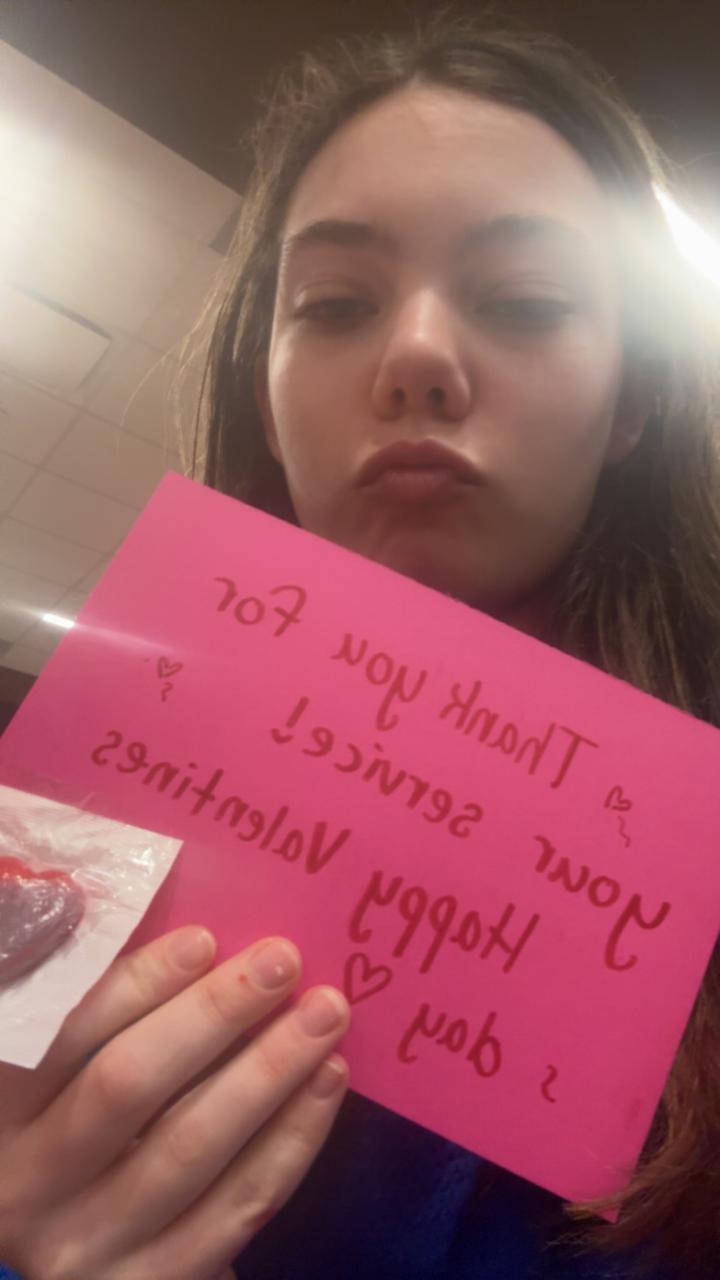 Thank you for
your service!
Happy Valentines
s day